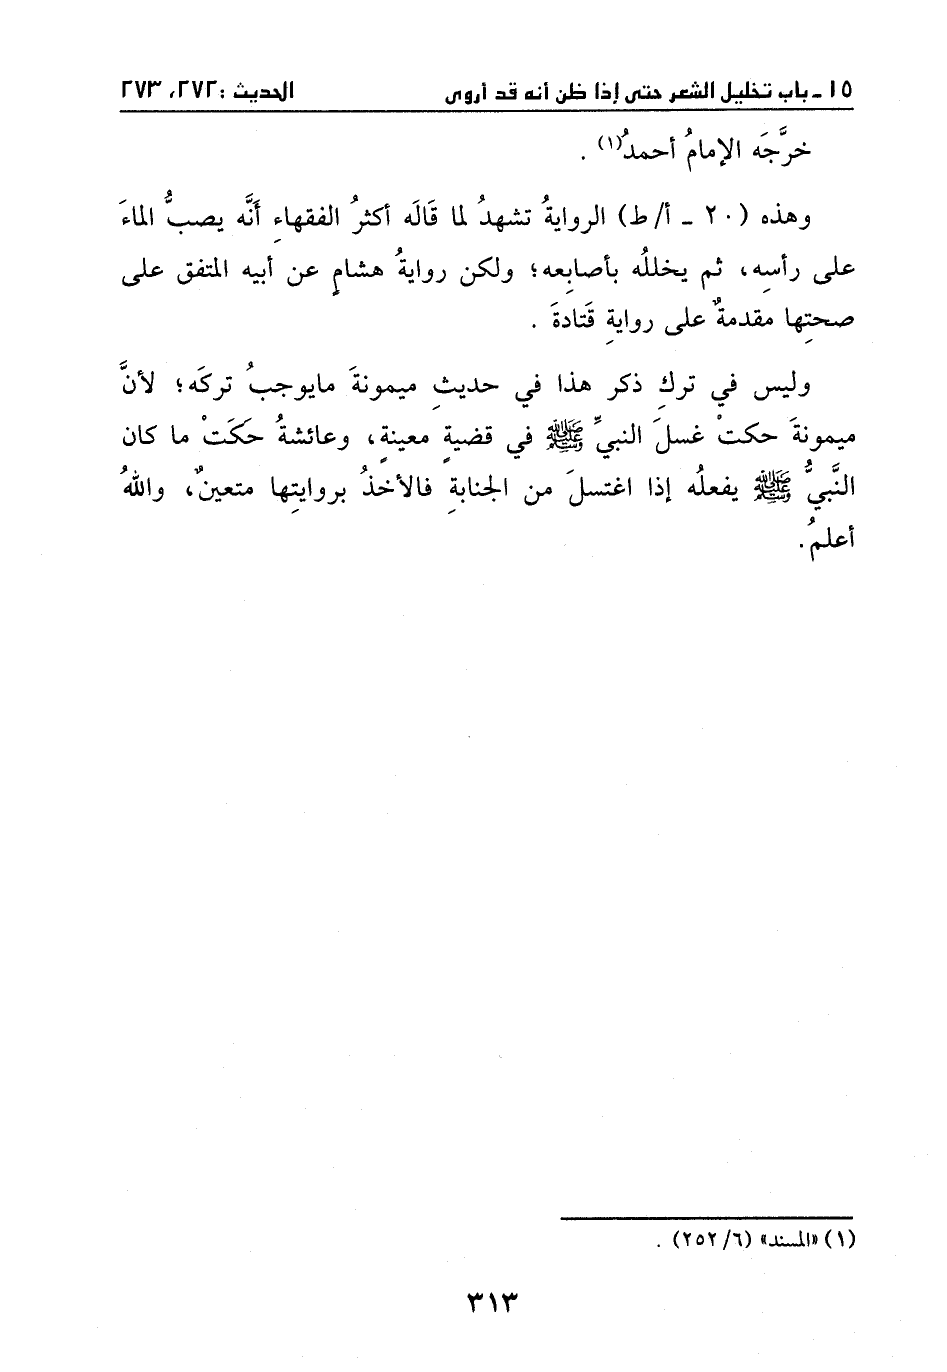 ١٥ ـ باب تخليل الشعر حتى إذا ظن أنه قد أروى الحديث : ٢٧٢، ٢٧٣
خرَّجَه الإمامُ أحمدُ(١) .
وهذه (٢٠ ـ أ/ ط) الروايةُ تشهدُ لما قَالَه أكثرُ الفقهاءِ أَنَّه يصبُّ الماءَ
على رأسِه، ثم يخللُه بأصابِعه؛ ولكن روايةُ هشامٍ عن أبيه المتفق على
صحتِها مقدمةٌ على روايةِ قَتادةَ .
وليس في تركِ ذكر هذا في حديثِ ميمونةَ مايوجبُ تركَه؛ لأنَّ
ميمونةَ حكتْ غسلَ النبيِّ ﷺ في قضيةٍ معينةٍ، وعائشةُ حكَتْ ما كان
النَّبيُّ ﷺ يفعلُه إذا اغتسلَ من الجنابةِ فالأخذُ بروايتِها متعينٌ، واللهُ
أعلمُ.
(١) «المسند» (٦/ ٢٥٢) .
٣١٣